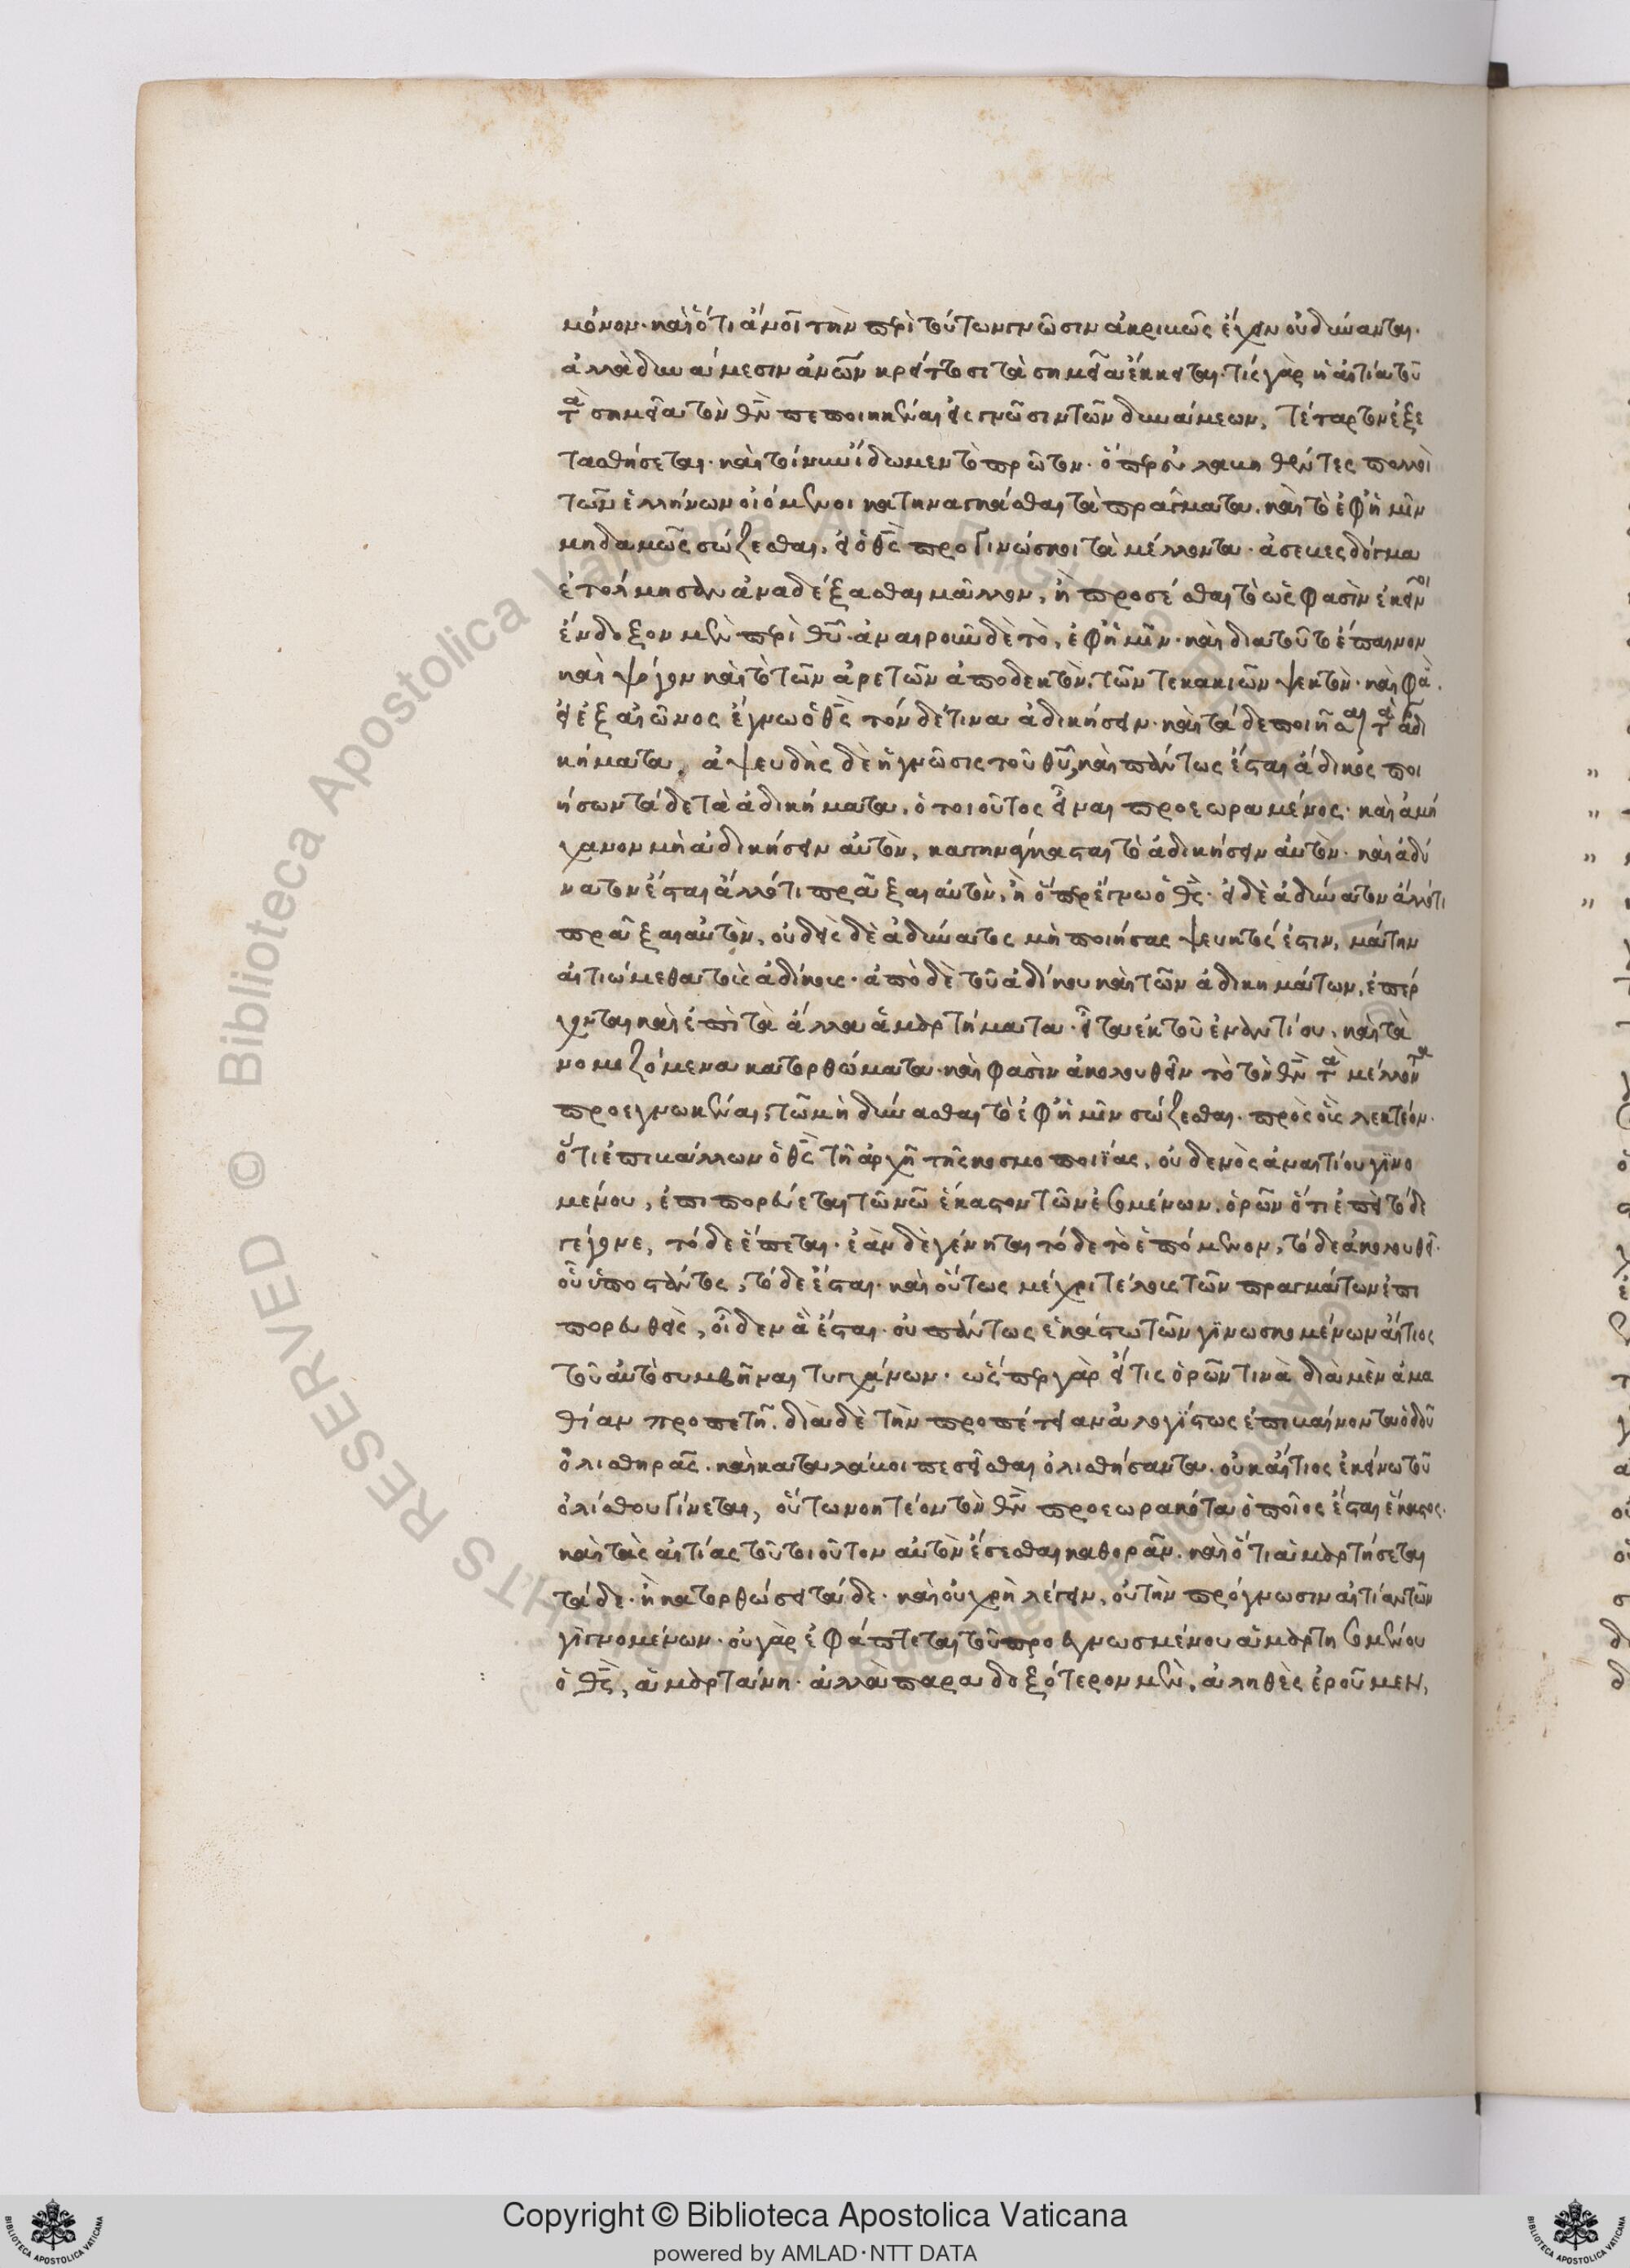 μόνον· καὶ ὅτι ἄνοι τὴν περὶ τούτων γνῶσιν ἀκριβῶς ἔχειν οὐ δύνανται·
ἀλλὰ δυνάμεσιν ἀνῶν κρείττοσι τὰ σημεῖα ἔκκειται· τίς γὰρ ἡ αἰτία τοῦ
τὰ σημεῖα τὸν θν πεποιηκέναι εἰς γνῶσιν τῶν δυνάμεων, τέταρτον ἐξε
τασθήσεται· καὶ τοίνυν ἴδωμεν τὸ πρῶτον· ὅπερ εὐλαβηθέντες πολλοὶ
τῶν ἑλλήνων οἰόμενοι κατηναγκάσθαι τὰ πράγματα· καὶ τὸ ἐφ' ἡμῖν
μηδαμῶς σώζεσθαι, εἰ ὁ θς προγινώσκοι τὰ μέλλοντα· ἀσεβὲς δόγμα
ἐτόλμησαν ἀναδέξασθαι μᾶλλον, ἢ προσέσθαι τὸ ὥς φασιν ἐκεῖνοι
ἔνδοξον μὲν περὶ θυ· ἀναιροῦν δὲ τὸ ἐφ' ἡμῖν· καὶ διὰ τοῦτο ἔπαινον
καὶ ψόγον καὶ τὸ τῶν ἀρετῶν ἀποδεκτὸν, τῶν τε κακιῶν ψεκτὸν· καὶ φα.
εἰ ἐξ αἰῶνος ἔγνω ὁ θς τόνδε τινὰ ἀδικήσειν· καὶ τάδε ποιῆσαι τὰ ἀδι
κήματα, ἀψευδὴς δὲ ἡ γνῶσις τοῦ θυ, καὶ πάντως ἔσται ἄδικος ποι
ήσων τάδε τὰ ἀδικήματα, ὁ τοιοῦτος εἶναι προεωραμένος· καὶ ἀμή
χανον μὴ ἀδικήσειν αὐτὸν, κατηνάγκασται τὸ ἀδικήσειν αὐτὸν· καὶ ἀδύ
νατον ἔσται ἄλλό τι πρᾶξαι αὐτὸν, ἢ ὅπερ ἔγνω ὁ θς· εἰ δὲ ἀδύνατον ἄλλό τι
πρᾶξαι αὐτὸν, οὐδεὶς δὲ ἀδύνατος μὴ ποιήσας ψευκτός ἐστιν, μάτην
αἰτιώμεθα τοὺς ἀδίκους· ἀπὸ δὲ τοῦ ἀδίκου καὶ τῶν ἀδικημάτων, ἐπέρ
χονται καὶ ἐπὶ τὰ ἄλλα ἁμαρτήματα· εἶτα ἐκ τοῦ ἐναντίου, καὶ τὰ
νομιζόμενα κατορθώματα· καὶ φασὶν ἀκολουθεῖν τὸ τὸν θν τὰ μέλλοντα
προεγνωκέναι, τῶ μὴ δύνασθαι τὸ ἐφ' ἡμῖν σώζεσθαι· πρὸς οὓς λεκτέον·
ὅτι ἐπιβάλλων ὁ θς τῇ ἀρχῇ τῆς κοσμοποιΐας, οὐδενὸς ἀναιτίου γινο
μένου, ἐπιπορεύεται τῶ νῶ ἕκαστον τῶν ἐσομένων, ὁρῶν ὅτι ἐπεὶ τόδε
γέγονε, τόδε ἕπεται· ἐὰν δὲ γένηται τόδε τὸ ἑπόμενον, τόδε ἀκολουθεῖ·
οὗ ὑποστάντος, τόδε ἔσται· καὶ οὕτως μέχρι τέλους τῶν πραγμάτων ἐπι
πορευθεὶς, οἶδεν ἃ ἔσται· οὐ πάντως ἑκάστω τῶν γινωσκομένων αἴτιος
τοῦ αὐτὸ συμβῆναι τυγχάνων· ὥσπερ γὰρ εἴ τις ὁρῶν τινὰ διὰ μὲν ἀμα
θίαν προπετῆ, διὰ δὲ τὴν προπέτειαν ἀλογίστως ἐπιβαίνοντα ὁδοῦ
ὀλισθηρᾶς· καὶ καταλάβοι πεσεῖσθαι ὀλισθήσαντα, οὐκ αἴτιος ἐκείνω τοῦ
ὀλίσθου γίνεται, οὕτω νοητέον τὸν θν προεωρακότα ὁποῖος ἔσται ἕκαστος·
καὶ τὰς αἰτίας τοῦ τοιοῦτον αὐτὸν ἔσεσθαι καθορᾶν· καὶ ὅτι ἁμαρτήσεται
τάδε· ἢ κατορθώσει τάδε· καὶ οὐ χρὴ λέγειν, οὐ τὴν πρόγνωσιν αἰτίαν τῶν
γιγνομένων· οὐ γὰρ ἐφάπτεται τοῦ προεγνωσμένου ἁμαρτησομένου
ὁ θς, ἁμαρτάνη· ἀλλὰ παραδοξότερον μὲν, ἀληθὲς ἐροῦμεν,
Copyright © Biblioteca Apostolica Vaticana
powered by AMLAD·NTT DATA